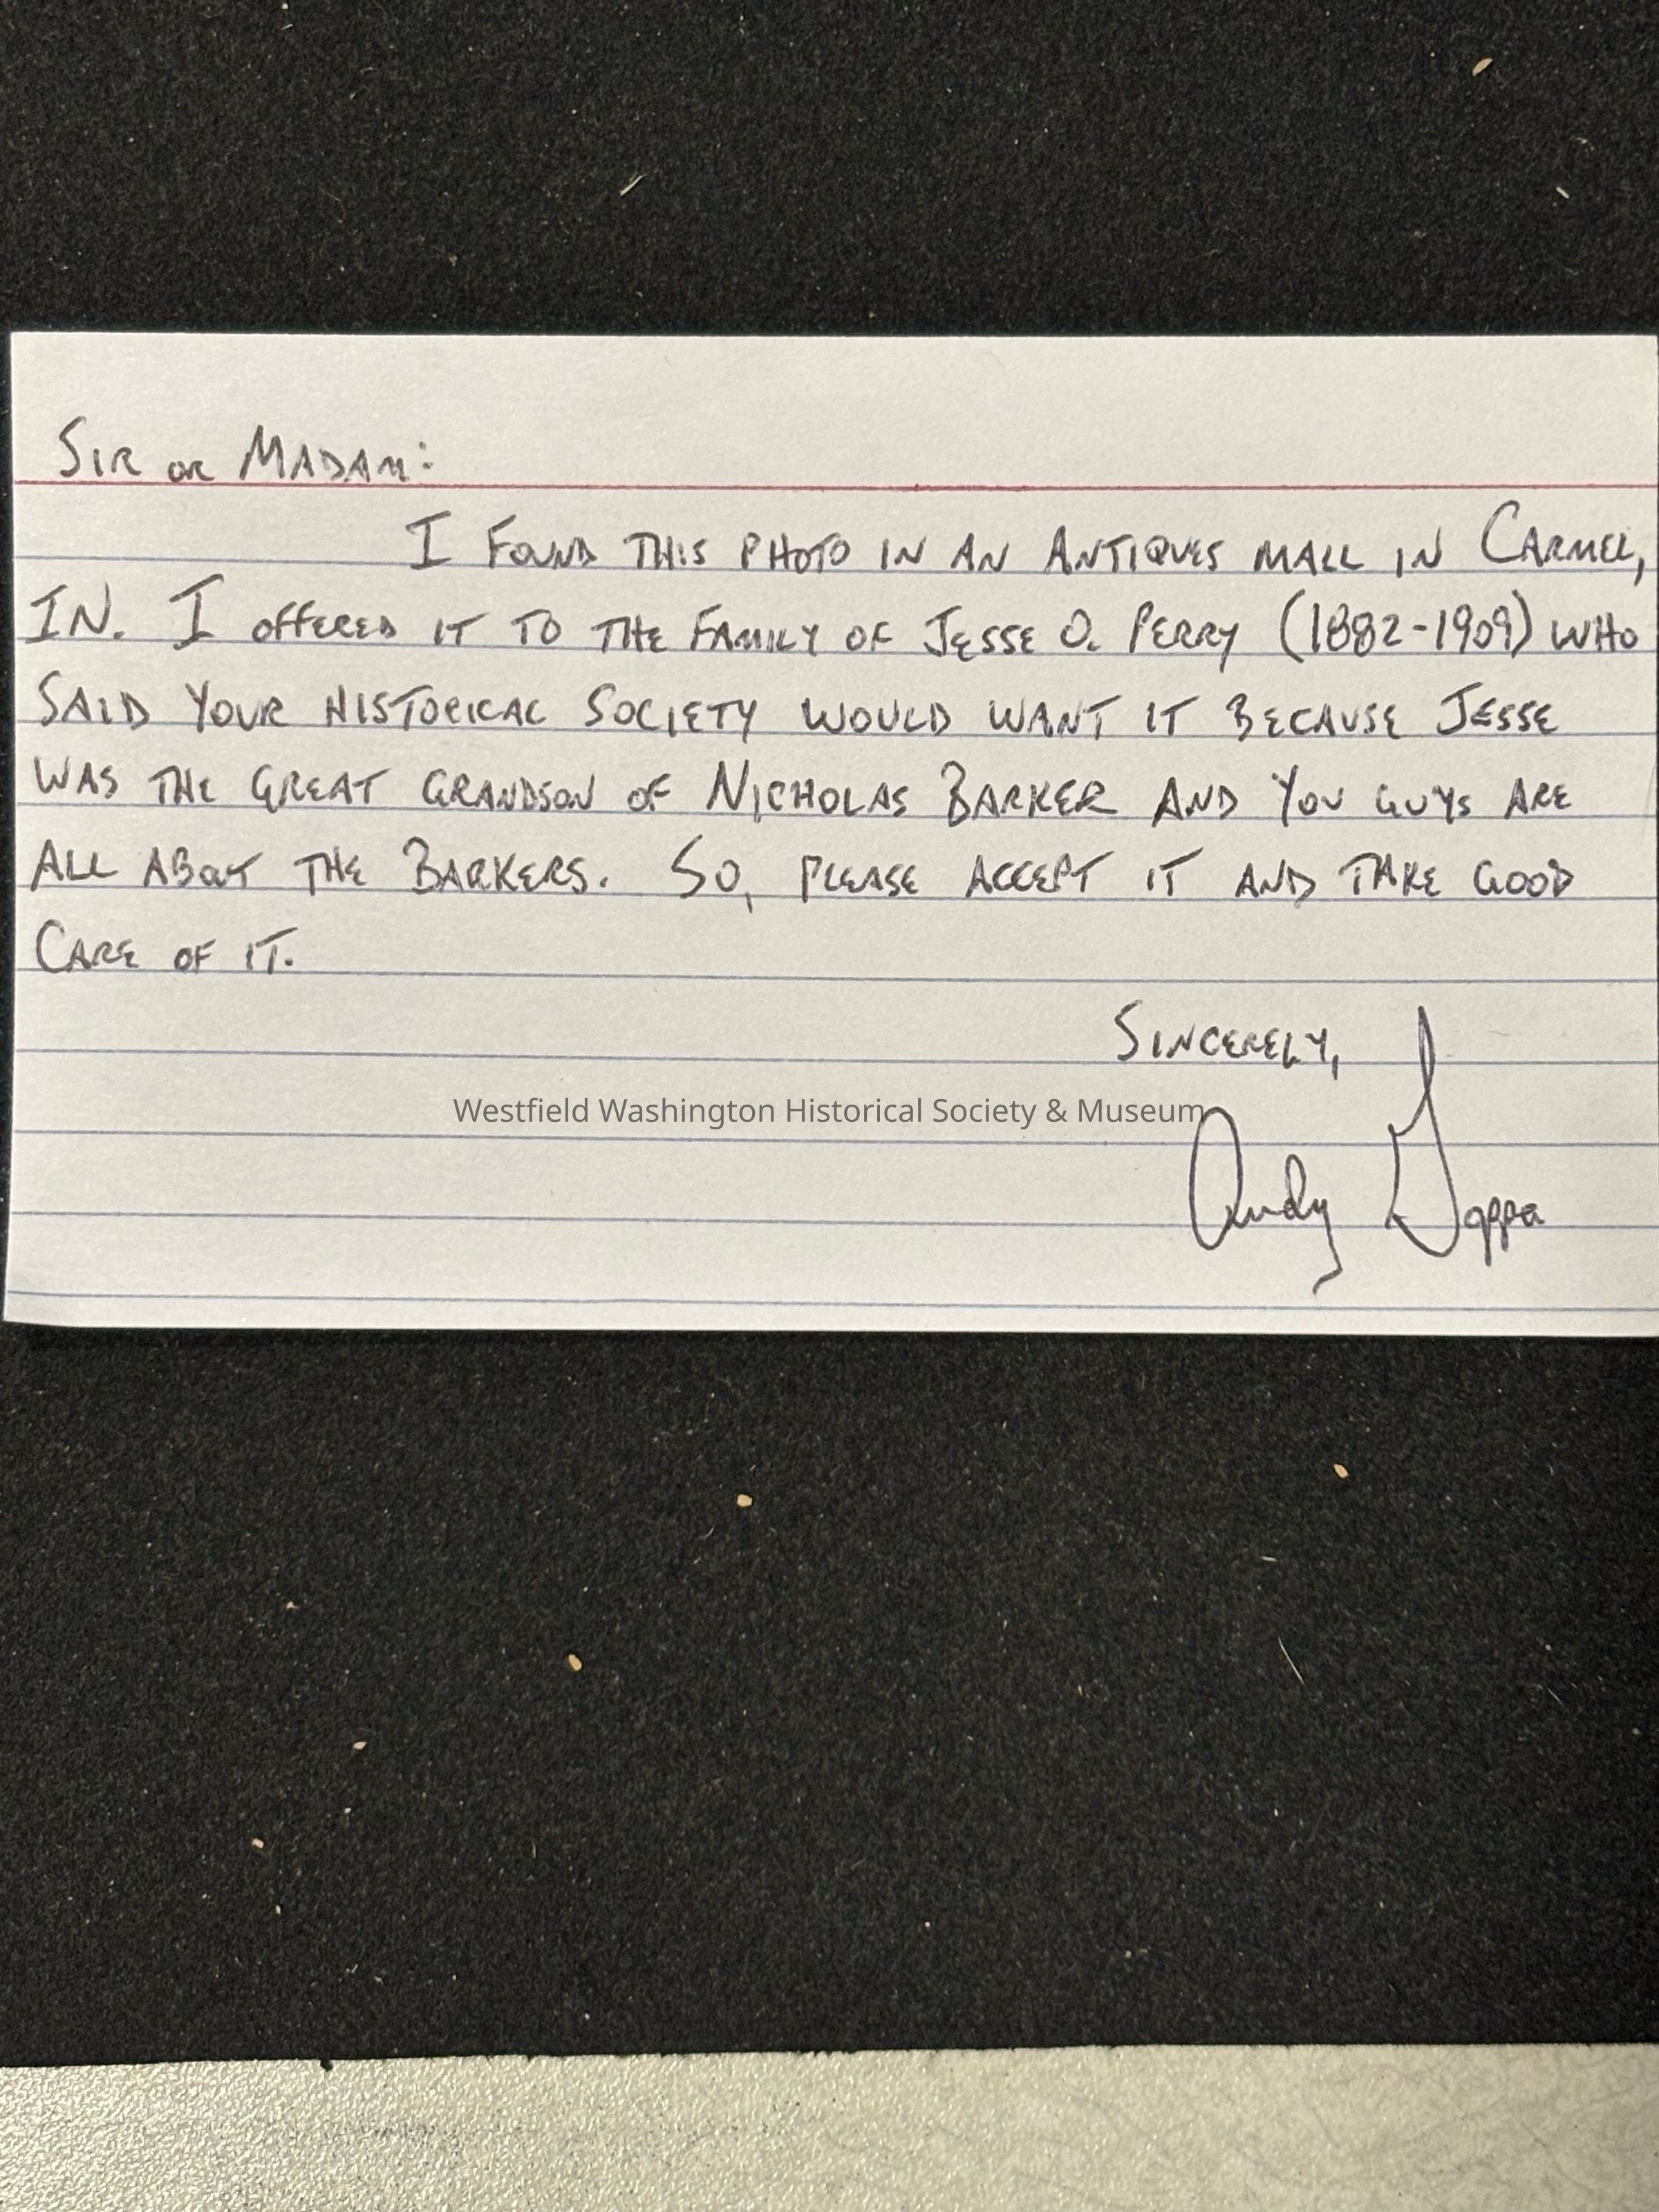 SIR OR MADAM:
I FOUND THIS PHOTO IN AN ANTIQUES MALL IN CARMEL,
IN. I OFFERED IT TO THE FAMILY OF JESSE O. PERRY (1882-1909) WHO
SAID YOUR HISTORICAL SOCIETY WOULD WANT IT BECAUSE JESSE
WAS THE GREAT GRANDSON OF NICHOLAS BARKER AND YOU GUYS ARE
ALL ABOUT THE BARKERS. SO, PLEASE ACCEPT IT AND TAKE GOOD
CARE OF IT.
SINCERELY,
Westfield Washington Historical Society & Museum
Andy